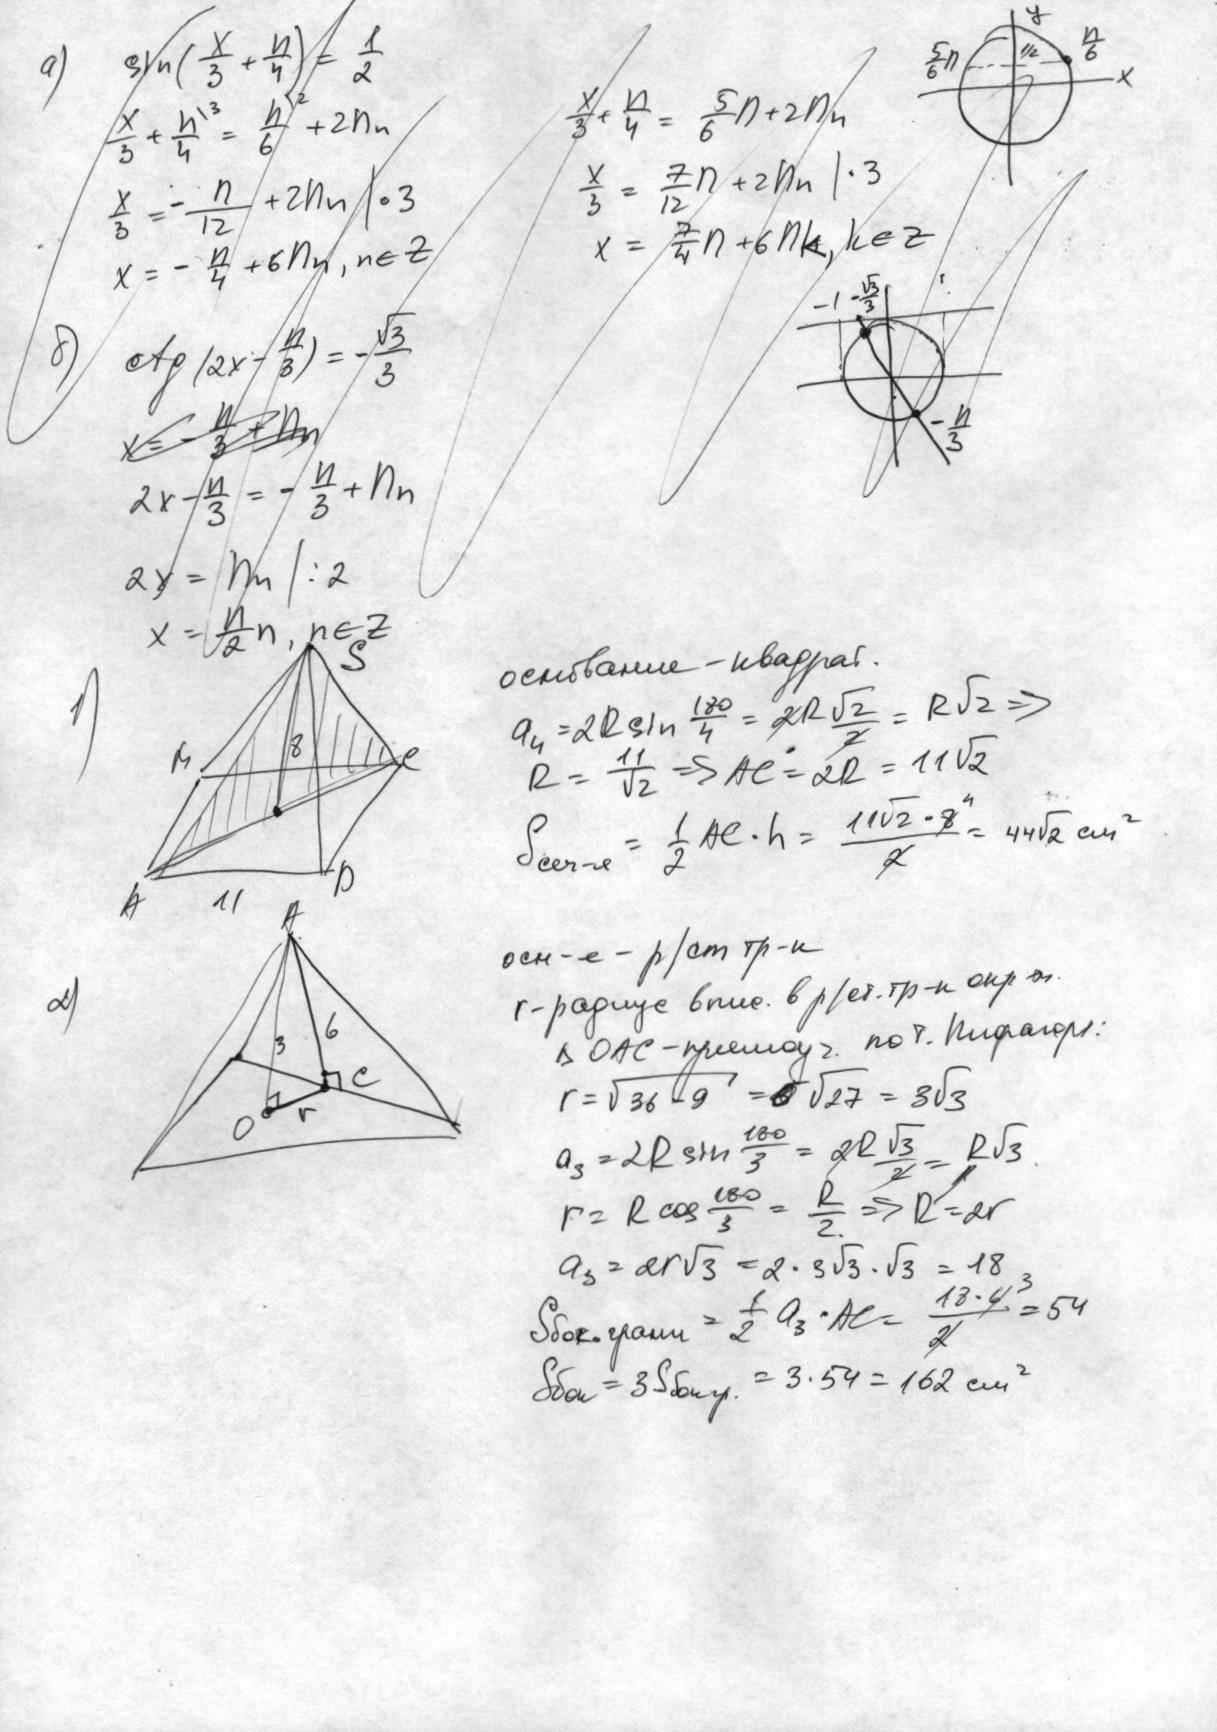 а) sin(x/3 + π/4) = 1/2
x/3 + π/4 \3 = π/6 \2 + 2πn
x/3 = -π/12 + 2πn | · 3
x = -π/4 + 6πn, n ∈ Z
x/3 + π/4 = 5/6 π + 2πn
x/3 = 7/12 π + 2πn | · 3
x = 7/4 π + 6πk, k ∈ Z
y
5/6 π 1/2 π/6
x
б) ctg(2x - π/3) = -√3/3
x = -π/3 + πn
2x - π/3 = -π/3 + πn
2x = πn | : 2
x = π/2 n, n ∈ Z
-1 -√3/3
-π/3
1)
S
8
M C
A 11 D
основание - квадрат.
a₄ = 2R sin 180/4 = 2R √2/2 = R√2 =>
R = 11/√2 => AC = 2R = 11√2
Sсеч-я = 1/2 AC · h = 11√2 · 8 4/2 = 44√2 см²
2)
A
3 6
C
O r
осн-е - р/ст тр-к
r - радиус впис. в р/ст. тр-к окр-ти.
△ OAC - прямоуг. по т. Пифагора:
r = √36 - 9 = √27 = 3√3
a₃ = 2R sin 180/3 = 2R √3/2 = R√3.
r = R cos 180/3 = R/2 => R = 2r
a₃ = 2r√3 = 2 · 3√3 · √3 = 18
Sбок. грани = 1/2 a₃ · AC = 18 · 6 3/2 = 54
Sбок = 3Sбок гр. = 3 · 54 = 162 см²